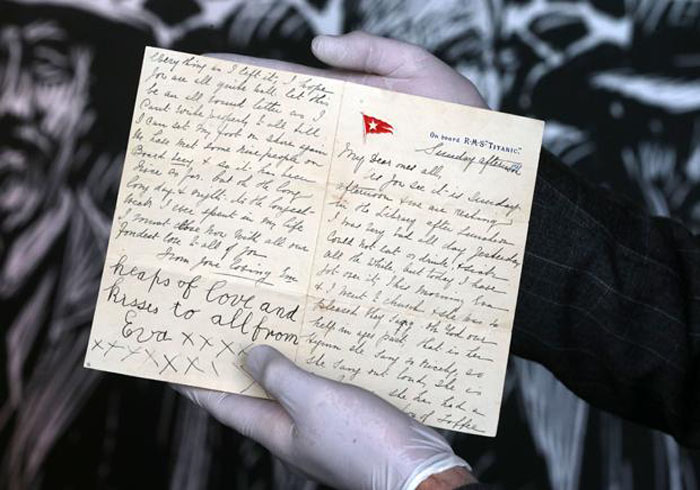 Everything as I left it, I hope
you are all quite well let this
be an all round letter as I
Can't write properly to all till
I can set my foot on shore again
We have met some nice people on
Board and so it has been
nice so far. but oh the long
long days & nights its the longest
break I ever spent in my life
I must close now with all our
Fondest love to all of you
From your loving
heaps of love and
kisses to all from
Eva xxxxx
xxxxxxx
On board R.M.S. "TITANIC."
Sunday afternoon
My dear ones all,
As you see it is Sunday
afternoon & we are resting
in the Library after Luncheon
I was very bad all day yesterday
Could not eat or drink, & sick
all the while, but today I have
got over it, This Morning Eva
& I went to church & she was so
pleased they sang oh God our
help in ages past, that is her
Hymn she sang so nicely, so
She sang out loud, She is
She has had a
of Toffee